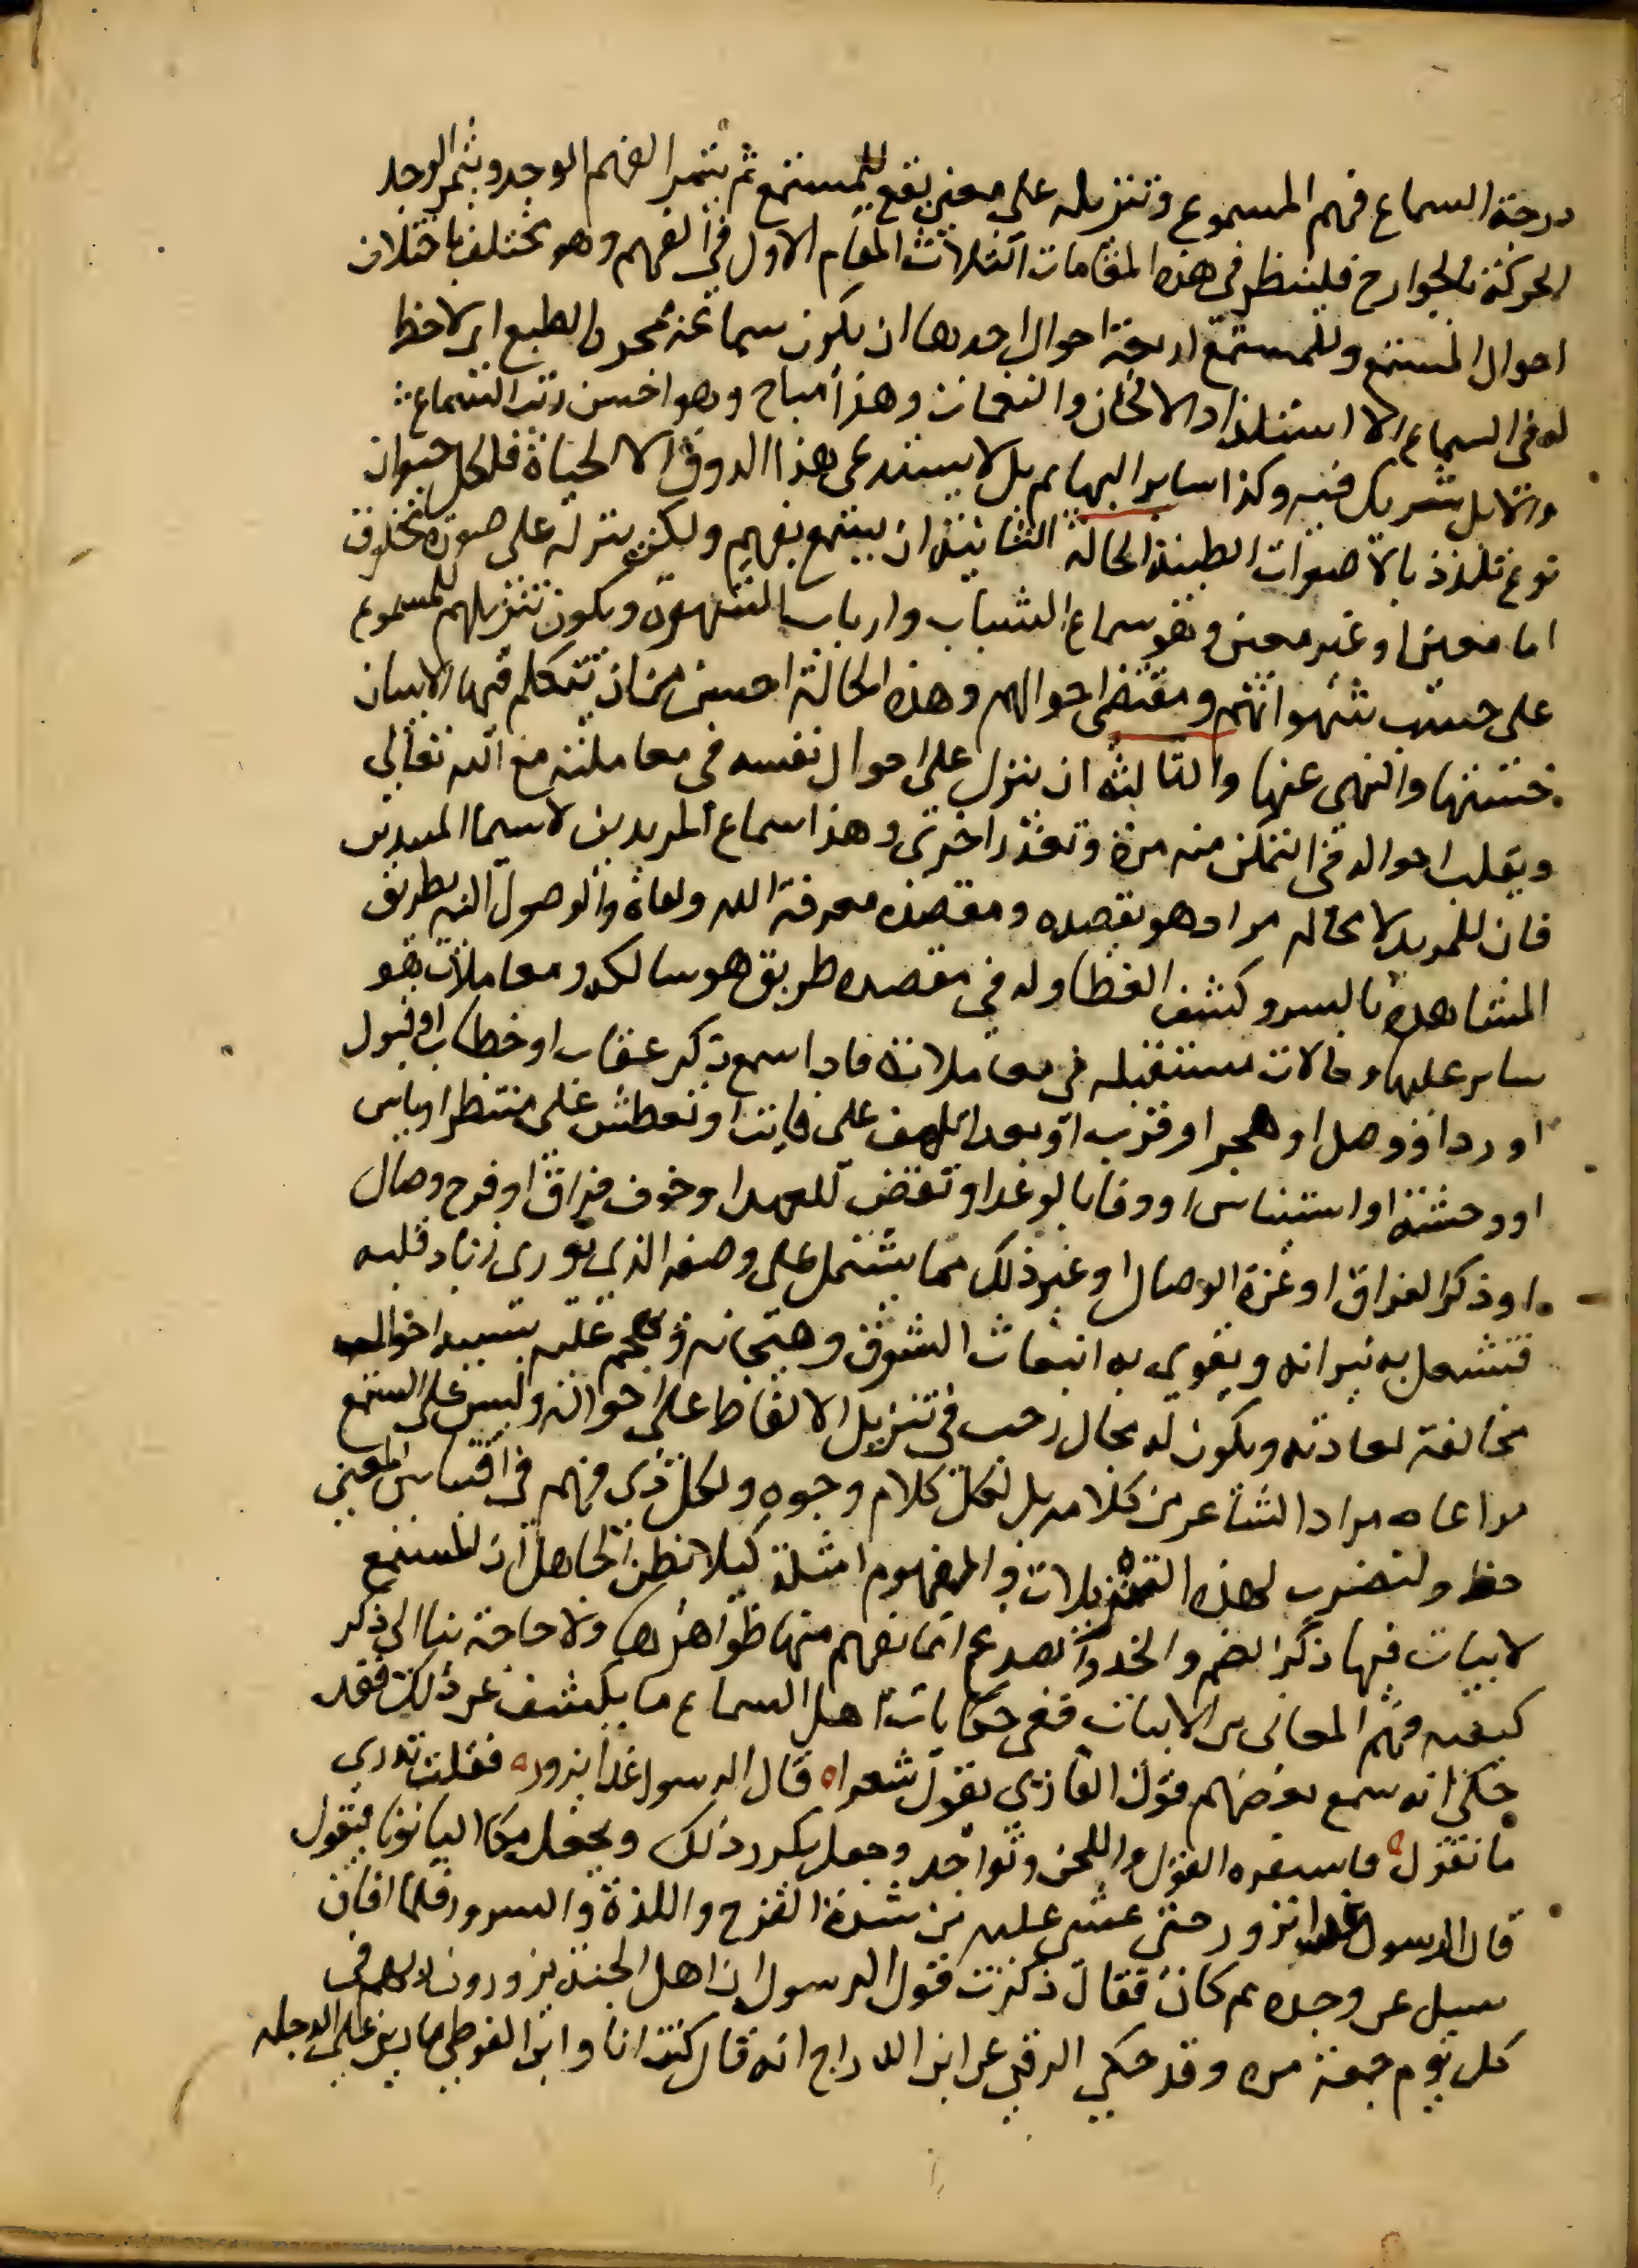 درجة السماع فهم المسموع وتنزيله على معنى يقع للمستمع ثم يثمر الفهم الوجد ويثمر الوجد
الحركة بالجوارح فلينظر في هذه المقامات الثلاث المقام الاول في الفهم وهو يختلف باختلاف
احوال المستمع وللمستمع اربعة احوال احدها ان يكون سماعه بمجرد الطبع اي لا حظ
له في السماع الا استلذاذ الالحان والنغمات وهذا مباح وهو اخس رتب السماع
والابل شريك فيه وكذا ساير البهايم بل لا يستدعي هذا الذوق الا الحياة فلكل حيوان
نوع تلذذ بالاصوات الطيبة الحالة الثانية ان يستمع بفهم ولكن ينزله على صورة مخلوق
اما معين او غير معين وهو سماع الشباب وارباب الشهوة ويكون تنزيلهم للمسموع
على حسب شهواتهم ومقتضى احوالهم وهذه الحالة اخس من ان نتكلم فيها الا ببيان
خستها والنهي عنها والثالثة ان ينزل على احوال نفسه في معاملته مع الله تعالى
وتقلب احواله في التمكن منه مرة وتعذر اخرى وهذا سماع المريدين لا سيما المبتدين
فان للمريد لا محالة مراد هو بقصده ومقصده معرفة الله ولقاه والوصول اليه بطريق
المشاهدة بالسر وكشف الغطا وله في مقصده طريق هو سالكه ومعاملات هو
ساير عليها وحالات تستقبله في معاملاته فاذا سمع ذكر عتاب او خطاب او قبول
او رد او وصل او هجر او قرب او بعد او تلهف على فايت او تعطش على منتظر او ياس
او وحشة او استيناس او وفا بالوعد او نقض للعهد او خوف فراق او فرح وصال
او ذكر الفراق او عزة الوصال او غير ذلك مما يشتمل على وصفه الذي يوري زناد قلبه
فتشعل به نيرانه ويقوى به انبعاث الشوق وهيجانه ويهجم عليه بسببه احوال
مخالفة لعادته ويكون له مجال رحب في تنزيل الالفاظ على احواله وليس على المستمع
مراعاه مراد الشاعر من كلامه بل لكل كلام وجوه ولكل ذي فهم في اقتباس المعنى
حظ ولنضرب لهذه التنزيلات والمفهوم امثلة كيلا يظن الجاهل ان المستمع
لابيات فيها ذكر الفم والخد والصدغ انما يفهم منها ظواهرها ولا حاجة بنا الى ذكر
كيفيه فهم المعاني من الابيات ففي حكايات اهل السماع ما يكشف عن ذلك فقد
حكي انه سمع بعضهم قول القازي يقول شعرا ه قال الرسول غدا نزوره فقلت تدري
ما تقول ه فاستفزه القول واللحن وتواجد وجعل يكرر ذلك ويجعل مكان اليا نونا فيقول
قال الرسول غدا نزور حتى غشي عليه من شدة الفرح واللذة والسرور فلما افاق
سيل عن وجده مم كان فقال ذكرت قول الرسول ان اهل الجنة يزورون ربهم في
كل يوم جمعة مره وقد حكى الرقي عن ابن الدراج انه قال كنت انا وابن الفوطي مارين على الدجله